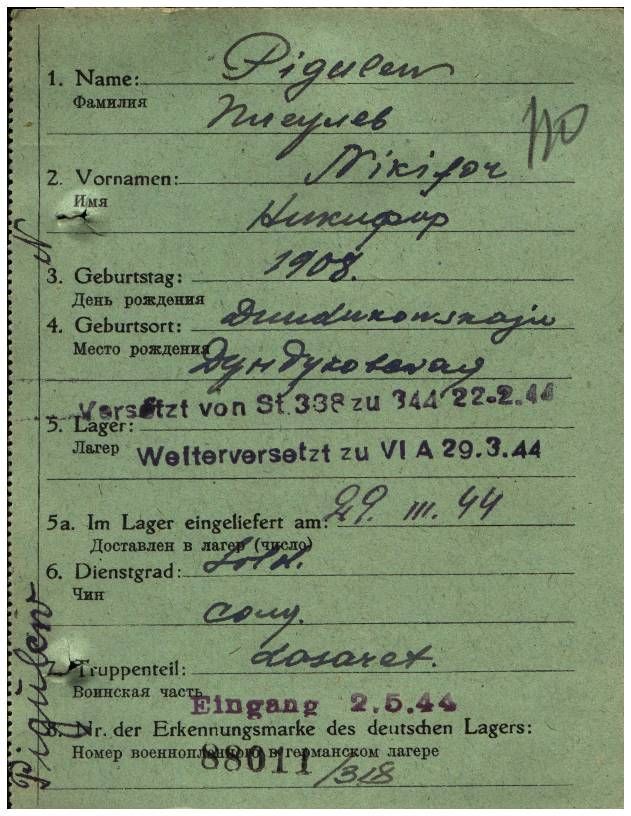 1. Name: Pigulew
Фамилия Пигулев
110
2. Vornamen: Nikifor
Имя Никифор
N
3. Geburtstag: 1908.
День рождения
4. Geburtsort: Dundukowskaja
Место рождения Дундуковская
Versetzt von St. 338 zu 344 22-2.44
5. Lager:
Лагер Weiterversetzt zu VI A 29.3.44
5a. Im Lager eingeliefert am: 29. III. 44
Доставлен в лагер (число)
6. Dienstgrad: Sold.
Чин
солд.
7. Truppenteil: Lasaret.
Воинская часть
Eingang 2.5.44
8. Nr. der Erkennungsmarke des deutschen Lagers:
Номер военнопленного в германском лагере
88011 /318
Pigulew